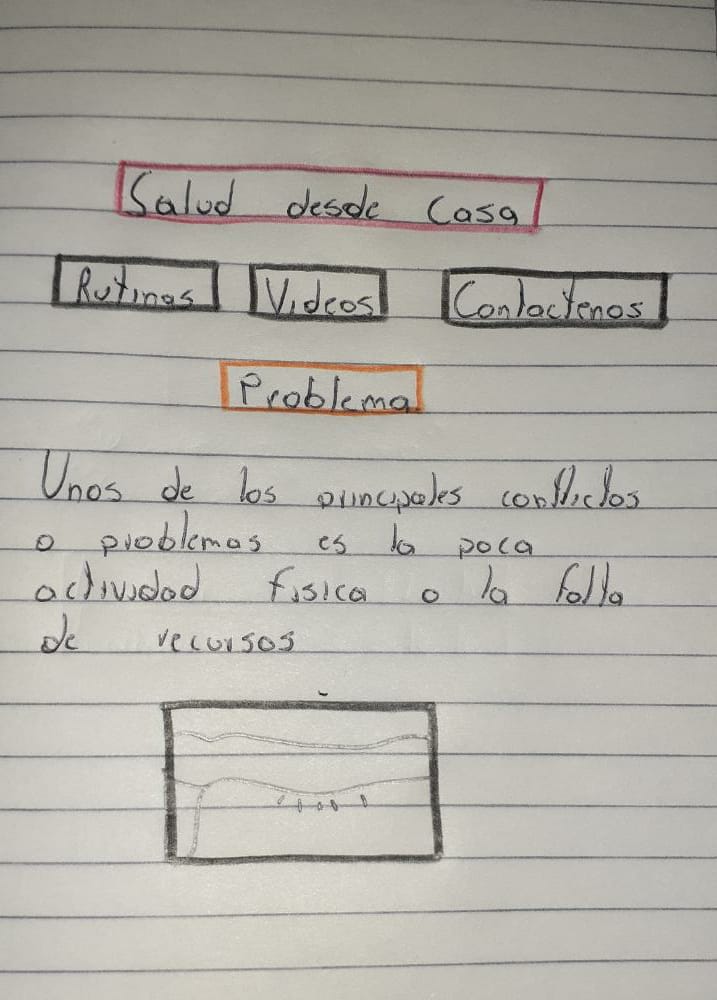 Salud desde Casa
Rutinas Videos Contactenos
Problema
Unos de los principales conflictos
o problemas es la poca
actividad fisica o la falta
de recursos